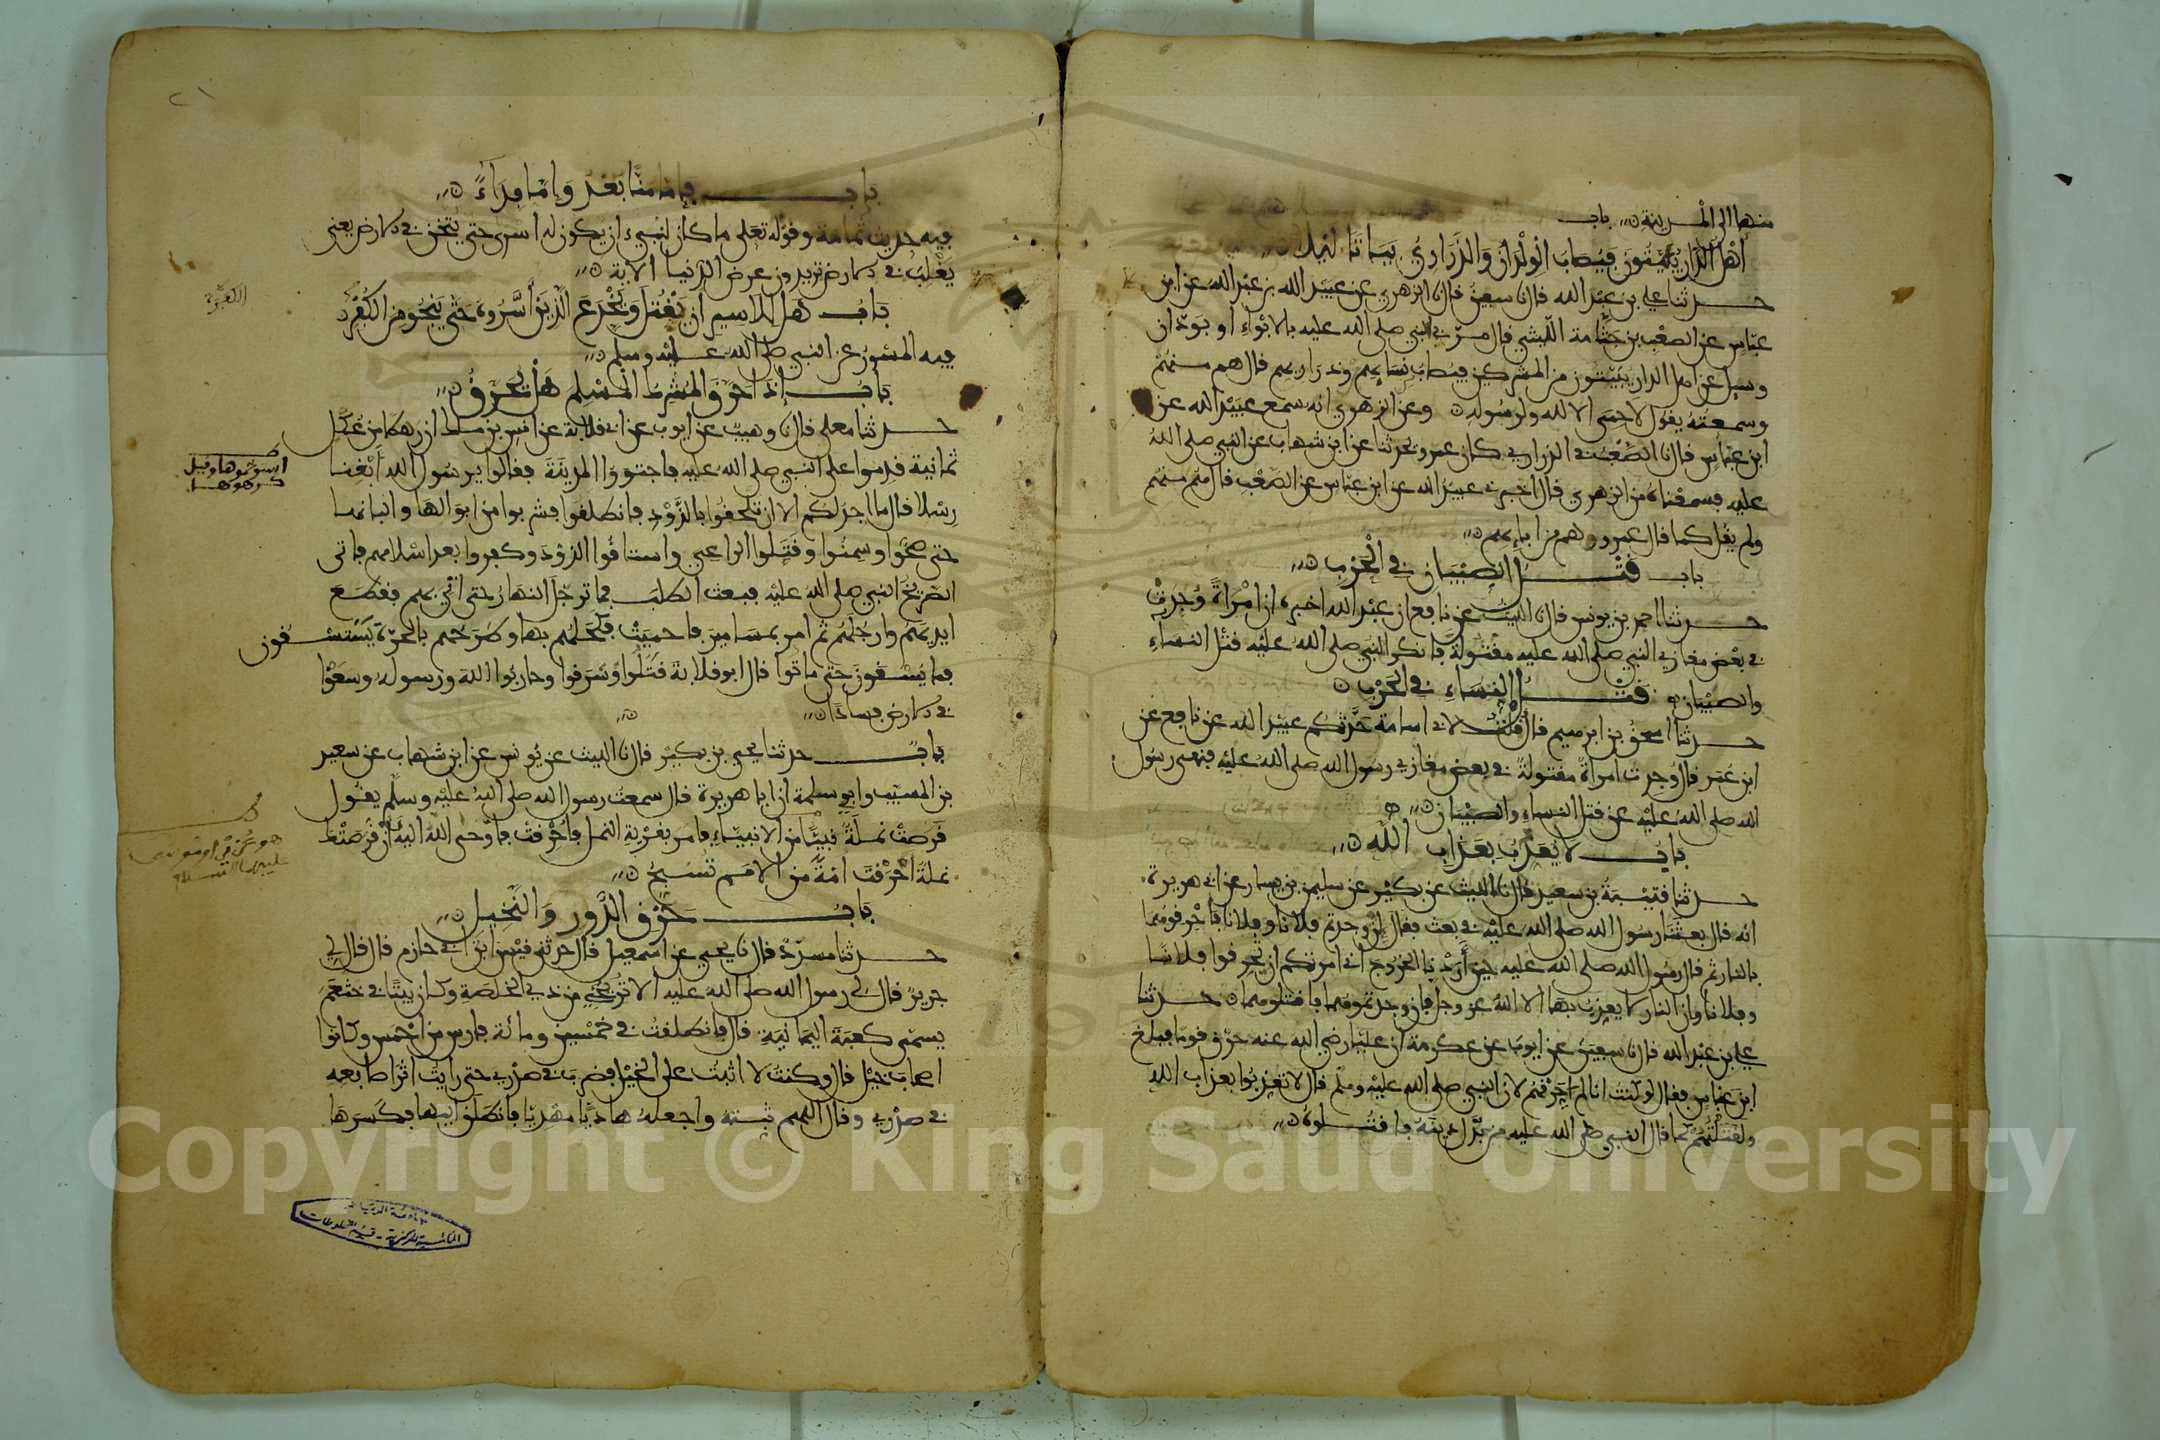 منها الى المدينة باب
اهل الدار يبيتون فيصاب الولدان والذراري بياتا ليلا
حدثنا علي بن عبد الله قال نا سفين قال نا الزهري عن عبيد الله بن عبد الله عن ابن
عباس عن الصعب بن جثامة الليثي قال مر بي النبي صلى الله عليه بالابواء او بودان
وسيل عن اهل الدار يبيتون من المشركين فيصاب نسايهم وذراريهم قال هم منهم
وسمعته يقول لا حمى الا لله ولرسوله وعن الزهري انه سمع عبيد الله عن
ابن عباس قال نا الصعب في الذراري كان عمرو يحدثنا عن ابن شهاب عن النبي صلى الله
عليه فسمعناه من الزهري قال اخبرني عبيد الله عن ابن عباس عن الصعب قال هم منهم
ولم يقل كما قال عمرو وهم من ابايهم
باب قتل الصبيان في الحرب
حدثنا احمد بن يونس قال نا الليث عن نافع ان عبد الله اخبره ان امراة وجدت
في بعض مغازي النبي صلى الله عليه مقتولة فانكر النبي صلى الله عليه قتل النساء
والصبيان قتل النساء في الحرب
حدثنا اسحق بن ابرهيم قال قلت لابي اسامة حدثكم عبيد الله عن نافع عن
ابن عمر قال وجدت امراة مقتولة في بعض مغازي رسول الله صلى الله عليه فنهى رسول
الله صلى الله عليه عن قتل النساء والصبيان
باب لا يعذب بعذاب الله
حدثنا قتيبة بن سعيد قال نا الليث عن بكير عن سليمن بن يسار عن ابي هريرة
انه قال بعثنا رسول الله صلى الله عليه في بعث فقال ان وجدتم فلانا وفلانا فاحرقوهما
بالنار ثم قال رسول الله صلى الله عليه حين اردنا الخروج اني امرتكم ان تحرقوا فلانا
وفلانا وان النار لا يعذب بها الا الله عز وجل فان وجدتموهما فاقتلوهما حدثنا
علي بن عبد الله قال نا سفين عن ايوب عن عكرمة ان عليا رضي الله عنه حرق قوما فبلغ
ابن عباس فقال لو كنت انا لم احرقهم لان النبي صلى الله عليه وسلم قال لا تعذبوا بعذاب الله
ولقتلتهم كما قال النبي صلى الله عليه من بدل دينه فاقتلوه
٢١
باب فاما منا بعد واما فداء
فيه حديث ثمامة وقوله تعلى ما كان لنبي ان يكون له اسرى حتى يثخن في الارض يعني
يغلب في الارض تريدون عرض الدنيا الاية
باب هل للاسير ان يقتل ويخدع الذين اسروه حتى ينجو من الكفرة
فيه المسور عن النبي صلى الله عليه وسلم
باب اذا حرق المشرك المسلم هل يحرق
حدثنا معلى قال نا وهيب عن ايوب عن ابي قلابة عن انس بن ملك ان رهطا من عكل
ثمانية قدموا على النبي صلى الله عليه فاجتووا المدينة فقالوا يرسول الله ابغنا
رسلا قال ما اجد لكم الا ان تلحقوا بالذود فانطلقوا فشربوا من ابوالها والبانها
حتى صحوا وسمنوا وقتلوا الراعي واستاقوا الذود وكفروا بعد اسلامهم فاتى
الصريخ النبي صلى الله عليه فبعث الطلب فما ترجل النهار حتى اتي بهم فقطع
ايديهم وارجلهم ثم امر بمسامير فاحميت فكحلهم بها وطرحهم بالحرة يستسقون
فما يسقون حتى ماتوا قال ابو قلابة قتلوا وسرقوا وحاربوا الله ورسوله وسعوا
في الارض فسادا
باب حدثنا يحيى بن بكير قال نا الليث عن يونس عن ابن شهاب عن سعيد
بن المسيب وابي سلمة ان ابا هريرة قال سمعت رسول الله صلى الله عليه وسلم يقول
قرصت نملة نبيا من الانبياء فامر بقرية النمل فاحرقت فاوحى الله اليه ان قرصتك
نملة احرقت امة من الامم تسبح
باب حرق الدور والنخيل
حدثنا مسدد قال نا يحيى عن اسمعيل قال حدثني قيس ابن ابي حازم قال قال لي
جرير قال لي رسول الله صلى الله عليه الا تريحني من ذي الخلصة وكان بيتا في خثعم
يسمى كعبة اليمانية قال فانطلقت في خمسين ومائة فارس من احمس وكانوا
اصحاب خيل قال وكنت لا اثبت على الخيل فضرب في صدري حتى رايت اثر اصابعه
في صدري وقال اللهم ثبته واجعله هاديا مهديا فانطلق اليها فكسرها
الكفرة
استوخموها وقيل
كرهوها
المكتبة المركزية - قسم المخطوطات
Copyright © King Saud University